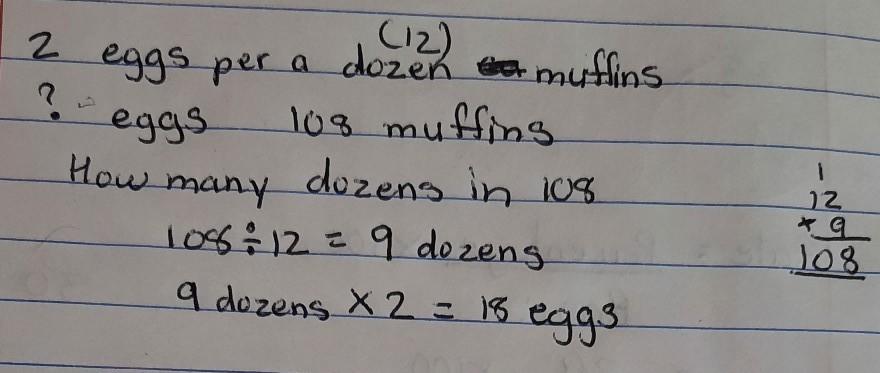 2 eggs per a dozen (12) muffins
? eggs 108 muffins
How many dozens in 108
108 ÷ 12 = 9 dozens
9 dozens × 2 = 18 eggs
1
12
× 9
108